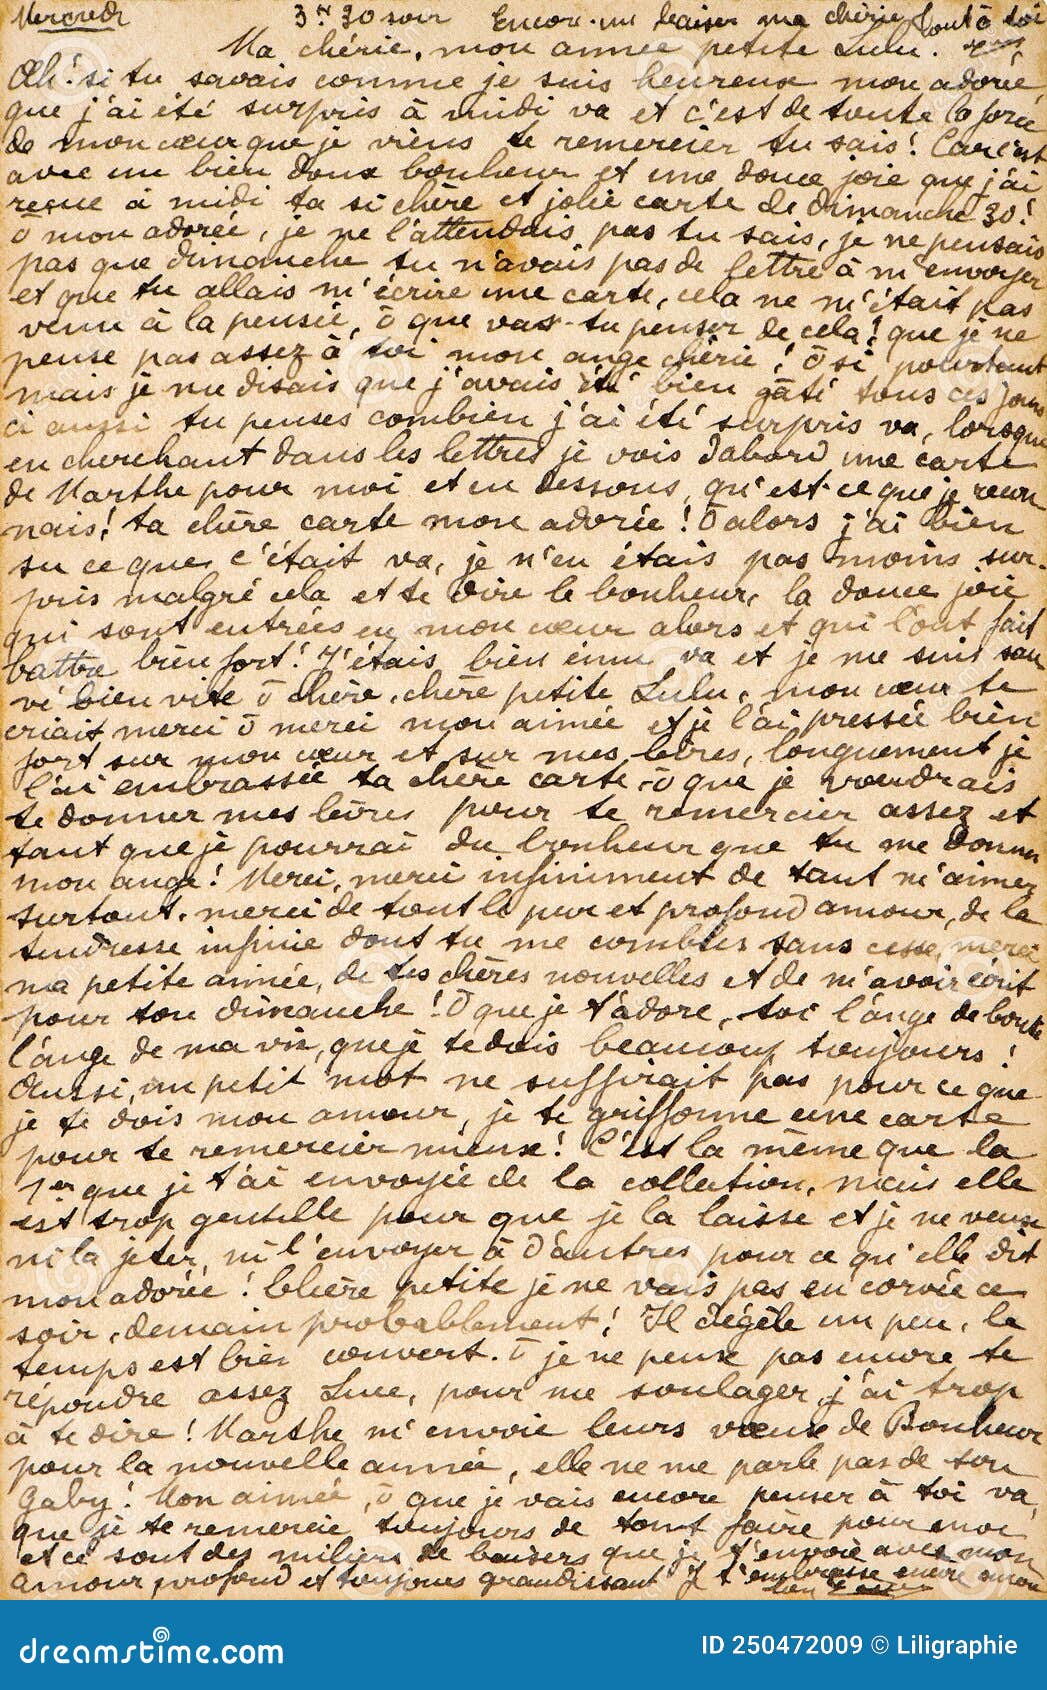 Mercredi 3h 30 soir Encore un baiser ma chérie Tout à toi
Ma chérie, mon aimée petite Lulu.
Oh! si tu savais comme je suis heureux mon adorée,
que j'ai été surpris à midi va et c'est de toute la force
de mon cœur que je viens te remercier tu sais! Car c'est
avec un bien doux bonheur et une douce joie que j'ai
reçue à midi ta si chère et jolie carte de dimanche 30!
ō mon adorée, je ne l'attendais pas tu sais, je ne pensais
pas que dimanche tu n'avais pas de lettre à m'envoyer
et que tu allais m'écrire une carte, cela ne m'était pas
venu à la pensée, ō que vas-tu penser de cela! que je ne
pense pas assez à toi mon ange chérie! ō si pourtant
mais je me disais que j'avais été bien gâté tous ces jours
ci aussi tu penses combien j'ai été surpris va, lorsque
en cherchant dans les lettres je vois dabord une carte
de Marthe pour moi et en dessous, qu'est-ce que je recon
nais! ta chère carte mon adorée! ō alors j'ai bien
su ce que c'était va, je n'en étais pas moins sur-
pris malgré cela et te dire le bonheur, la douce joie
qui sont entrées en mon cœur alors et qui l'ont fait
battre bien fort! J'étais bien ému va et je me suis sau
vé bien vite ō chère, chère petite Lulu, mon cœur te
criait merci ō merci mon aimée et je l'ai pressée bien
fort sur mon cœur et sur mes lèvres, longuement je
l'ai embrassée ta chère carte, ō que je voudrais
te donner mes lèvres pour te remercier assez et
tant que je pourrai du bonheur que tu me donnes
mon ange! Merci, merci infiniment de tant m'aimer
surtout, merci de tout le pur et profond amour, de la
tendresse infinie dont tu me combles sans cesse, merci
ma petite aimée, de tes chères nouvelles et de m'avoir écrit
pour ton dimanche! ō que je t'adore, toi l'ange de bonté
l'ange de ma vie, que je te dois beaucoup toujours!
Aussi, un petit mot ne suffirait pas pour ce que
je te dois mon amour, je te griffonne une carte
pour te remercier mieux! C'est la même que la
1er que je t'ai envoyée de la collection, mais elle
est trop gentille pour que je la laisse et je ne veux
ni la jeter, ni l'envoyer à d'autres pour ce qu'elle dit
mon adorée! Chère petite je ne vais pas en corvée ce
soir, demain probablement! Il dégèle un peu, le
temps est bien couvert. ō je ne peux pas encore te
répondre assez Luce, pour me soulager, j'ai trop
à te dire! Marthe m'envoie leurs vœux de Bonheur
pour la nouvelle année, elle ne me parle pas de son
Gaby! Mon aimée, ō que je vais encore penser à toi va,
que je te remercie toujours de tout faire pour moi
et ce sont des milliers de baisers que je t'envoie avec mon
amour profond et toujours grandissant J t'embrasse encore
dreamstime.com
ID 250472009 © Liligraphie